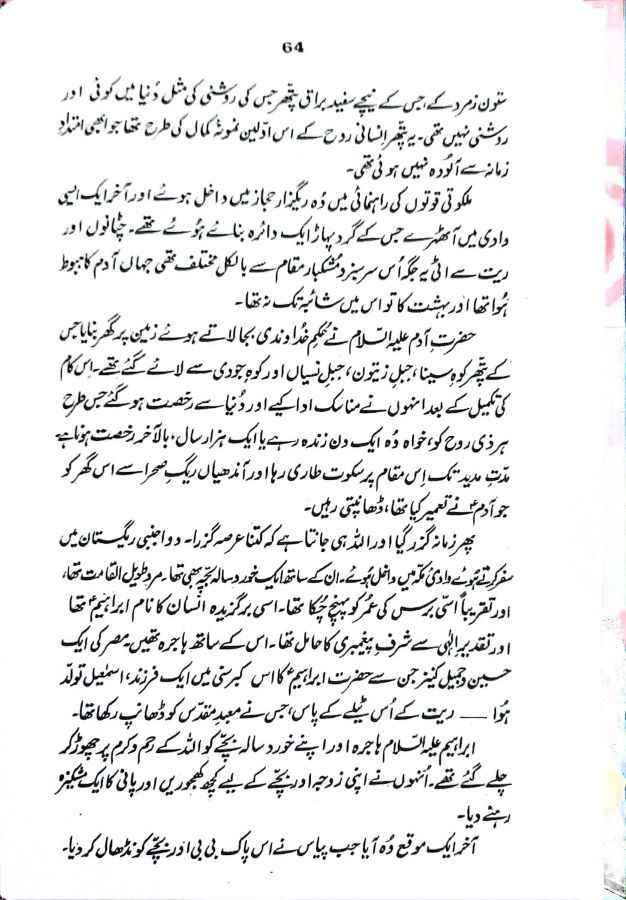 64
ستون زمرد کے، جس کے نیچے سفید براق پتھر جس کی روشنی کی مثل دُنیا میں کوئی اور
روشنی نہیں تھی۔ یہ پتھر انسانی روح کے اس اوّلین نمونۂ کمال کی طرح تھا جو ابھی امتدادِ
زمانہ سے آلودہ نہیں ہوئی تھی۔
ملکوتی قوتوں کی راہنمائی میں وُہ ریگزارِ حجاز میں داخل ہوئے اور آخر ایک ایسی
وادی میں آٹھہرے جس کے گرد پہاڑ ایک دائرہ بنائے ہُوئے تھے۔ چٹانوں اور
ریت سے اٹی یہ جگہ اُس سرسبز و مُشکبار مقام سے بالکل مختلف تھی جہاں آدم کا ہبوط
ہُوا تھا اور بہشت کا تو اس میں شائبہ تک نہ تھا۔
حضرتِ آدم علیہ السّلام نے حُکمِ خداوندی بجا لاتے ہوئے زمین پر گھر بنایا جس
کے پتھر کوہِ سینا، جبلِ زیتون، جبلِ نسیاں اور کوہِ جودی سے لائے گئے تھے۔ اِس کام
کی تکمیل کے بعد انہوں نے مناسک ادا کیے اور دُنیا سے رخصت ہو گئے جس طرح
ہر ذی روح کو، خواہ وُہ ایک دن زندہ رہے یا ایک ہزار سال، بالآخر رخصت ہونا ہے
مدّتِ مدید تک اِس مقام پر سکوت طاری رہا اور آندھیاں ریگِ صحرا سے اس گھر کو
جو آدمؑ نے تعمیر کیا تھا، ڈھانپتی رہیں۔
پھر زمانہ گزر گیا اور اللہ ہی جانتا ہے کہ کتنا عرصہ گزرا۔ دو اجنبی ریگستان میں
سفر کرتے ہُوئے وادیٔ مکّہ میں داخل ہُوئے۔ ان کے ساتھ ایک خورد سالہ بچّہ بھی تھا۔ مرد طویل القامت تھا،
اور تقریباً اسّی برس کی عُمر کو پہنچ چُکا تھا۔ اسی برگزیدہ اِنسان کا نام ابراہیمؑ تھا
اور تقدیرِ الٰہی سے شرفِ پیغمبری کا حامل تھا۔ اس کے ساتھ ہاجرہ تھیں۔ مصر کی ایک
حسین و جمیل کنیز جن سے حضرت ابراہیمؑ کا اس کبرسنی میں ایک فرزند، اسمٰعیل تولّد
ہُوا ـــــ ریت کے اُس ٹیلے کے پاس، جس نے معبدِ مقدّس کو ڈھانپ رکھا تھا۔
ابراہیم علیہ السّلام ہاجرہ اور اپنے خورد سالہ بچّے کو اللہ کے رحم و کرم پر چھوڑ کر
چلے گئے تھے۔ اُنہوں نے اپنی زوجہ اور بچّے کے لیے کُچھ کھجوریں اور پانی کا ایک مشکیزہ
رہنے دیا۔
آخر ایک موقع وُہ آیا جب پیاس نے اس پاک بی بی اور بچّے کو نڈھال کر دیا۔